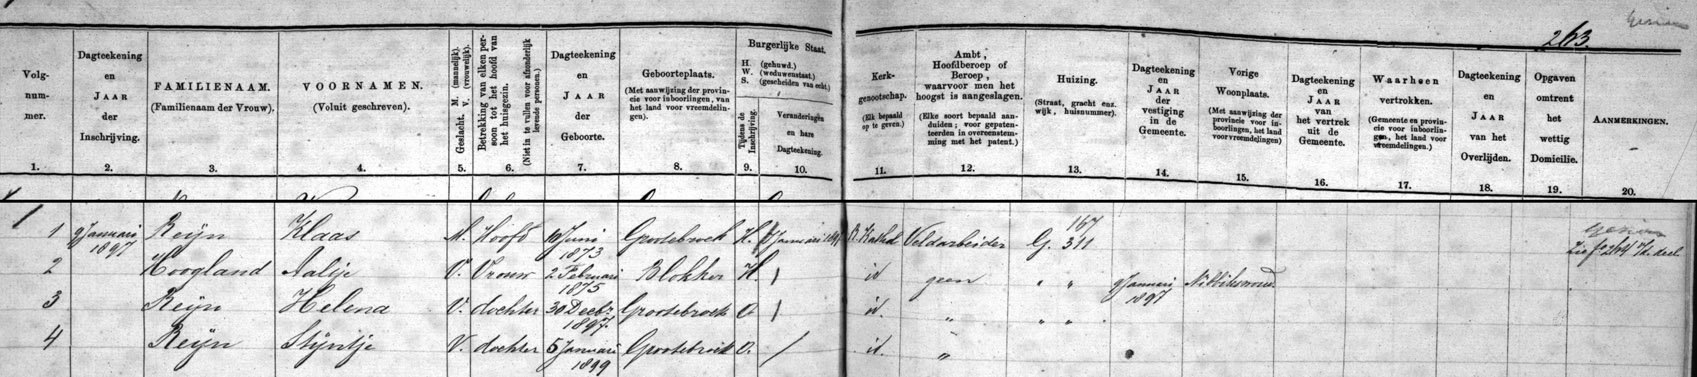 263.
Volg-
num-
mer.
1.
Dagteekening
en
JAAR
der
Inschrijving.
2.
FAMILIENAAM.
(Familienaam der Vrouw).
3.
VOORNAMEN.
(Voluit geschreven).
4.
Geslacht. M. (mannelijk).
V. (vrouwelijk).
5.
Betrekking van elken per-
soon tot het hoofd van
het huisgezin.
(Niet in te vullen voor afzonderlijk
levende personen.)
6.
Dagteekening
en
JAAR
der
Geboorte.
7.
Geboorteplaats.
(Met aanwijzing der provin-
cie voor inboorlingen, van
het land voor vreemdelin-
gen).
8.
Burgerlijke Staat.
H. (gehuwd.)
W. (weduwenstaat.)
S. (gescheiden van echt.)
Tijdens de
Inschrijving.
9.
Veranderingen
en hare
Dagteekening.
10.
Kerk-
genootschap.
(Elk bepaald
op te geven.)
11.
Ambt,
Hoofdberoep of
Beroep,
waarvoor men het
hoogst is aangeslagen.
(Elke soort bepaald aan-
duiden; voor gepaten-
teerden in overeenstem-
ming met het patent.)
12.
Huizing.
(Straat, gracht enz.
wijk, huisnummer).
13.
Dagteekening
en
JAAR
der
vestiging
in de
Gemeente.
14.
Vorige
Woonplaats.
(Met aanwijzing der
provincie voor in-
boorlingen, het land
voor vreemdelingen)
15.
Dagteekening
en
JAAR
van
het vertrek
uit de
Gemeente.
16.
Waarheen
vertrokken.
(Gemeente en provin-
cie voor inboorlin-
gen, het land voor
vreemdelingen.)
17.
Dagteekening
en
JAAR
van het
Overlijden.
18.
Opgaven
omtrent
het
wettig
Domicilie.
19.
AANMERKINGEN.
20.
1 9 Januari 1897 Reijn Klaas M. Hoofd 10 Juni 1873 Grootebroek H. Januari R. Kathol Veldarbeider G. 167 311 Zie f° 264 deel
2 Hoogland Aaltje V. Vrouw 2 Februari 1875 Blokker H. id geen " " 9 Januari 1897 Nibbikswoud
3 Reijn Helena V. dochter 30 Decbr 1897 Grootebroek O. id. " " "
4 Reijn Stijntje V. dochter 5 Januari 1899 Grootebroek O. id. "